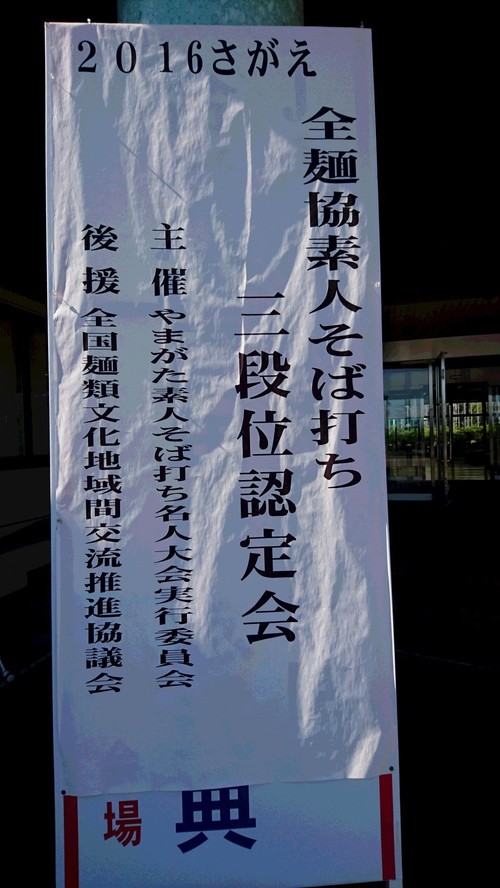 2016さがえ
全麺協素人そば打ち
三段位認定会
主催 やまがた素人そば打ち名人大会実行委員会
後援 全国麺類文化地域間交流推進協議会
典
場